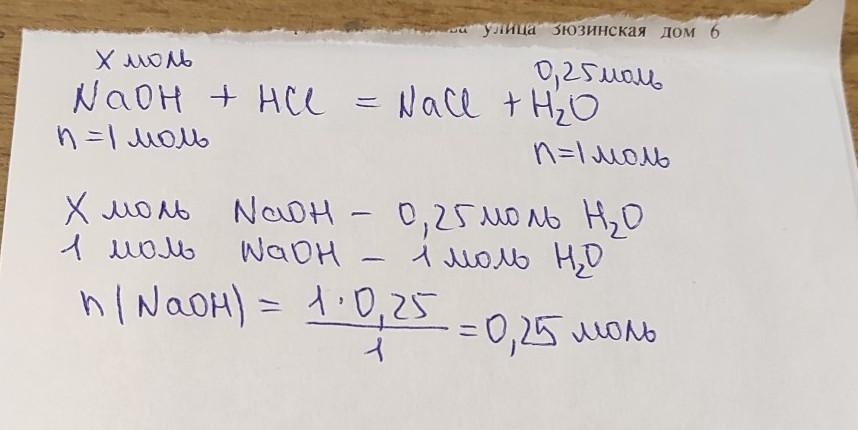 улица Зюзинская дом 6
X моль 0,25 моль
NaOH + HCl = NaCl + H₂O
n = 1 моль n = 1 моль
X моль NaOH – 0,25 моль H₂O
1 моль NaOH – 1 моль H₂O
n(NaOH) = 1 · 0,25 / 1 = 0,25 моль